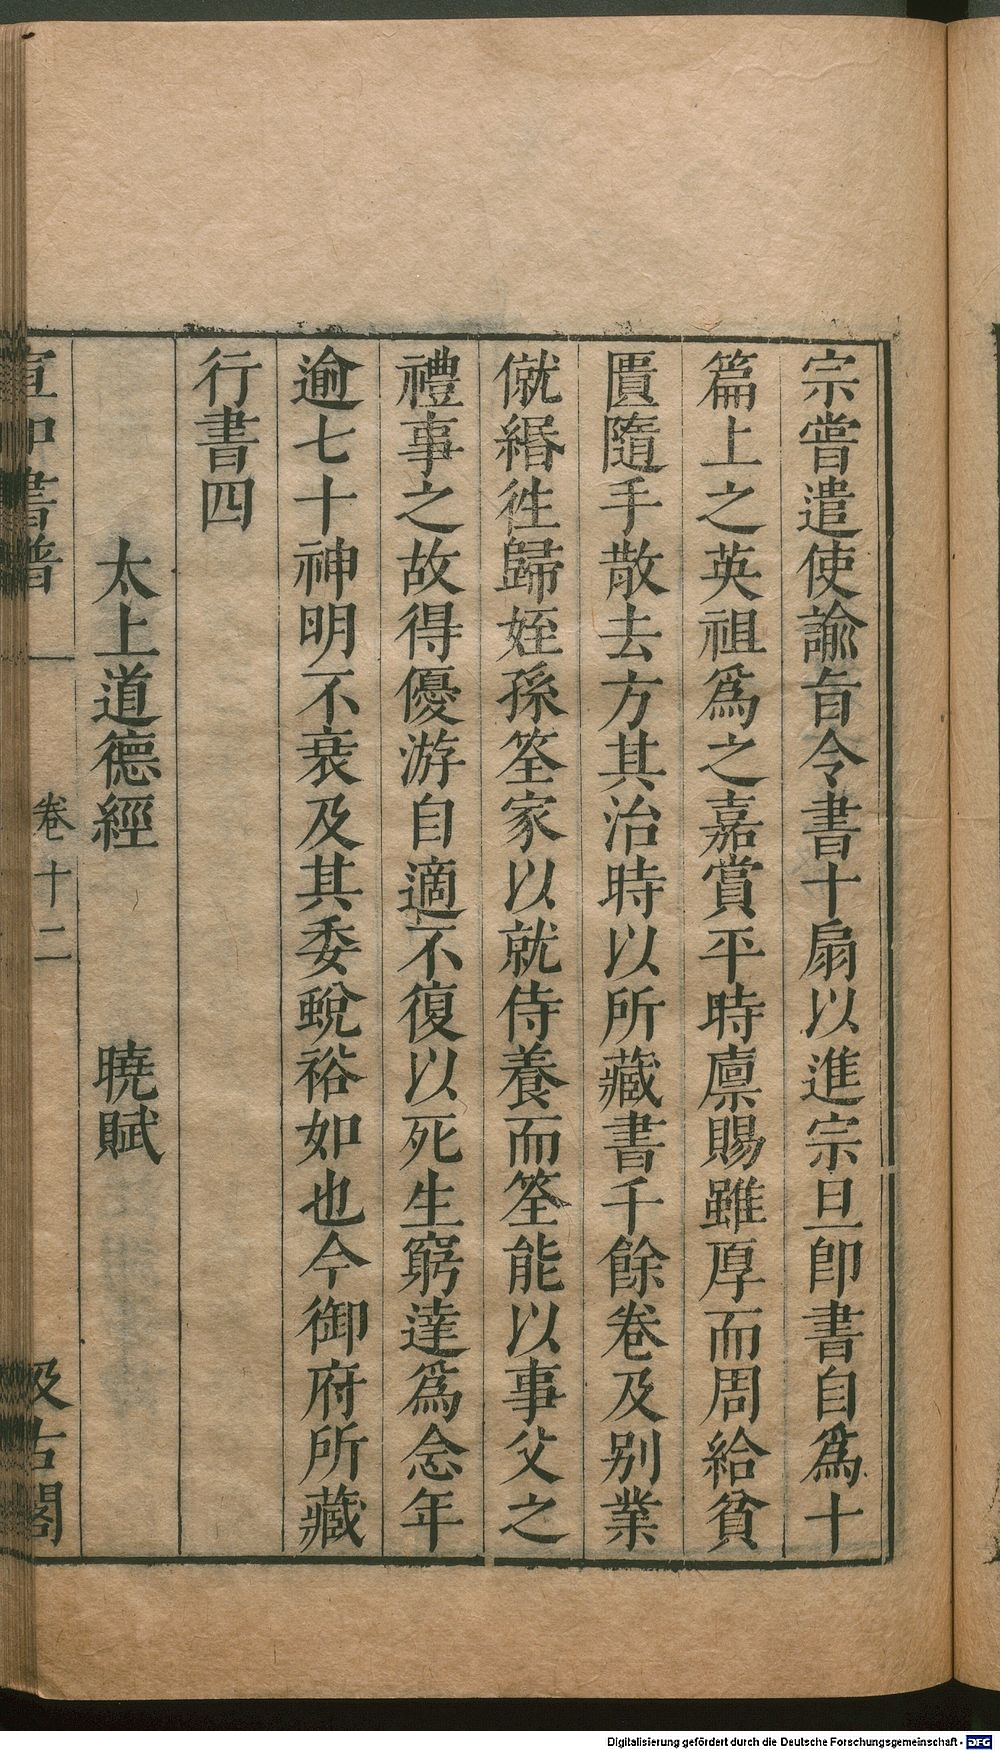 宗嘗遣使諭旨令書十扇以進宗旦卽書自爲十
篇上之英祖爲之嘉賞平時廩賜雖厚而周給貧
匱隨手散去方其治時以所藏書千餘卷及别業
僦緡徃歸姪孫筌家以就侍養而筌能以事父之
禮事之故得優游自適不復以死生窮達爲念年
逾七十神明不衰及其委蛻裕如也今御府所藏
行書四
太上道德經 曉賦
宣和書譜 卷十二 汲古閣
Digitalisierung gefördert durch die Deutsche Forschungsgemeinschaft - DFG